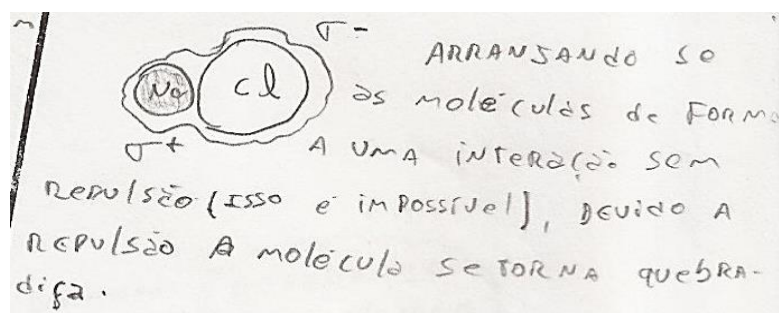 σ-
ARRANJANDO SE
Na Cl as moléculas de FORMA
σ+ A UMA interação sem
Repulsão (ISSO e impossível), DEVIDO A
Repulsão A molécula se TORNA quebRA-
diça.